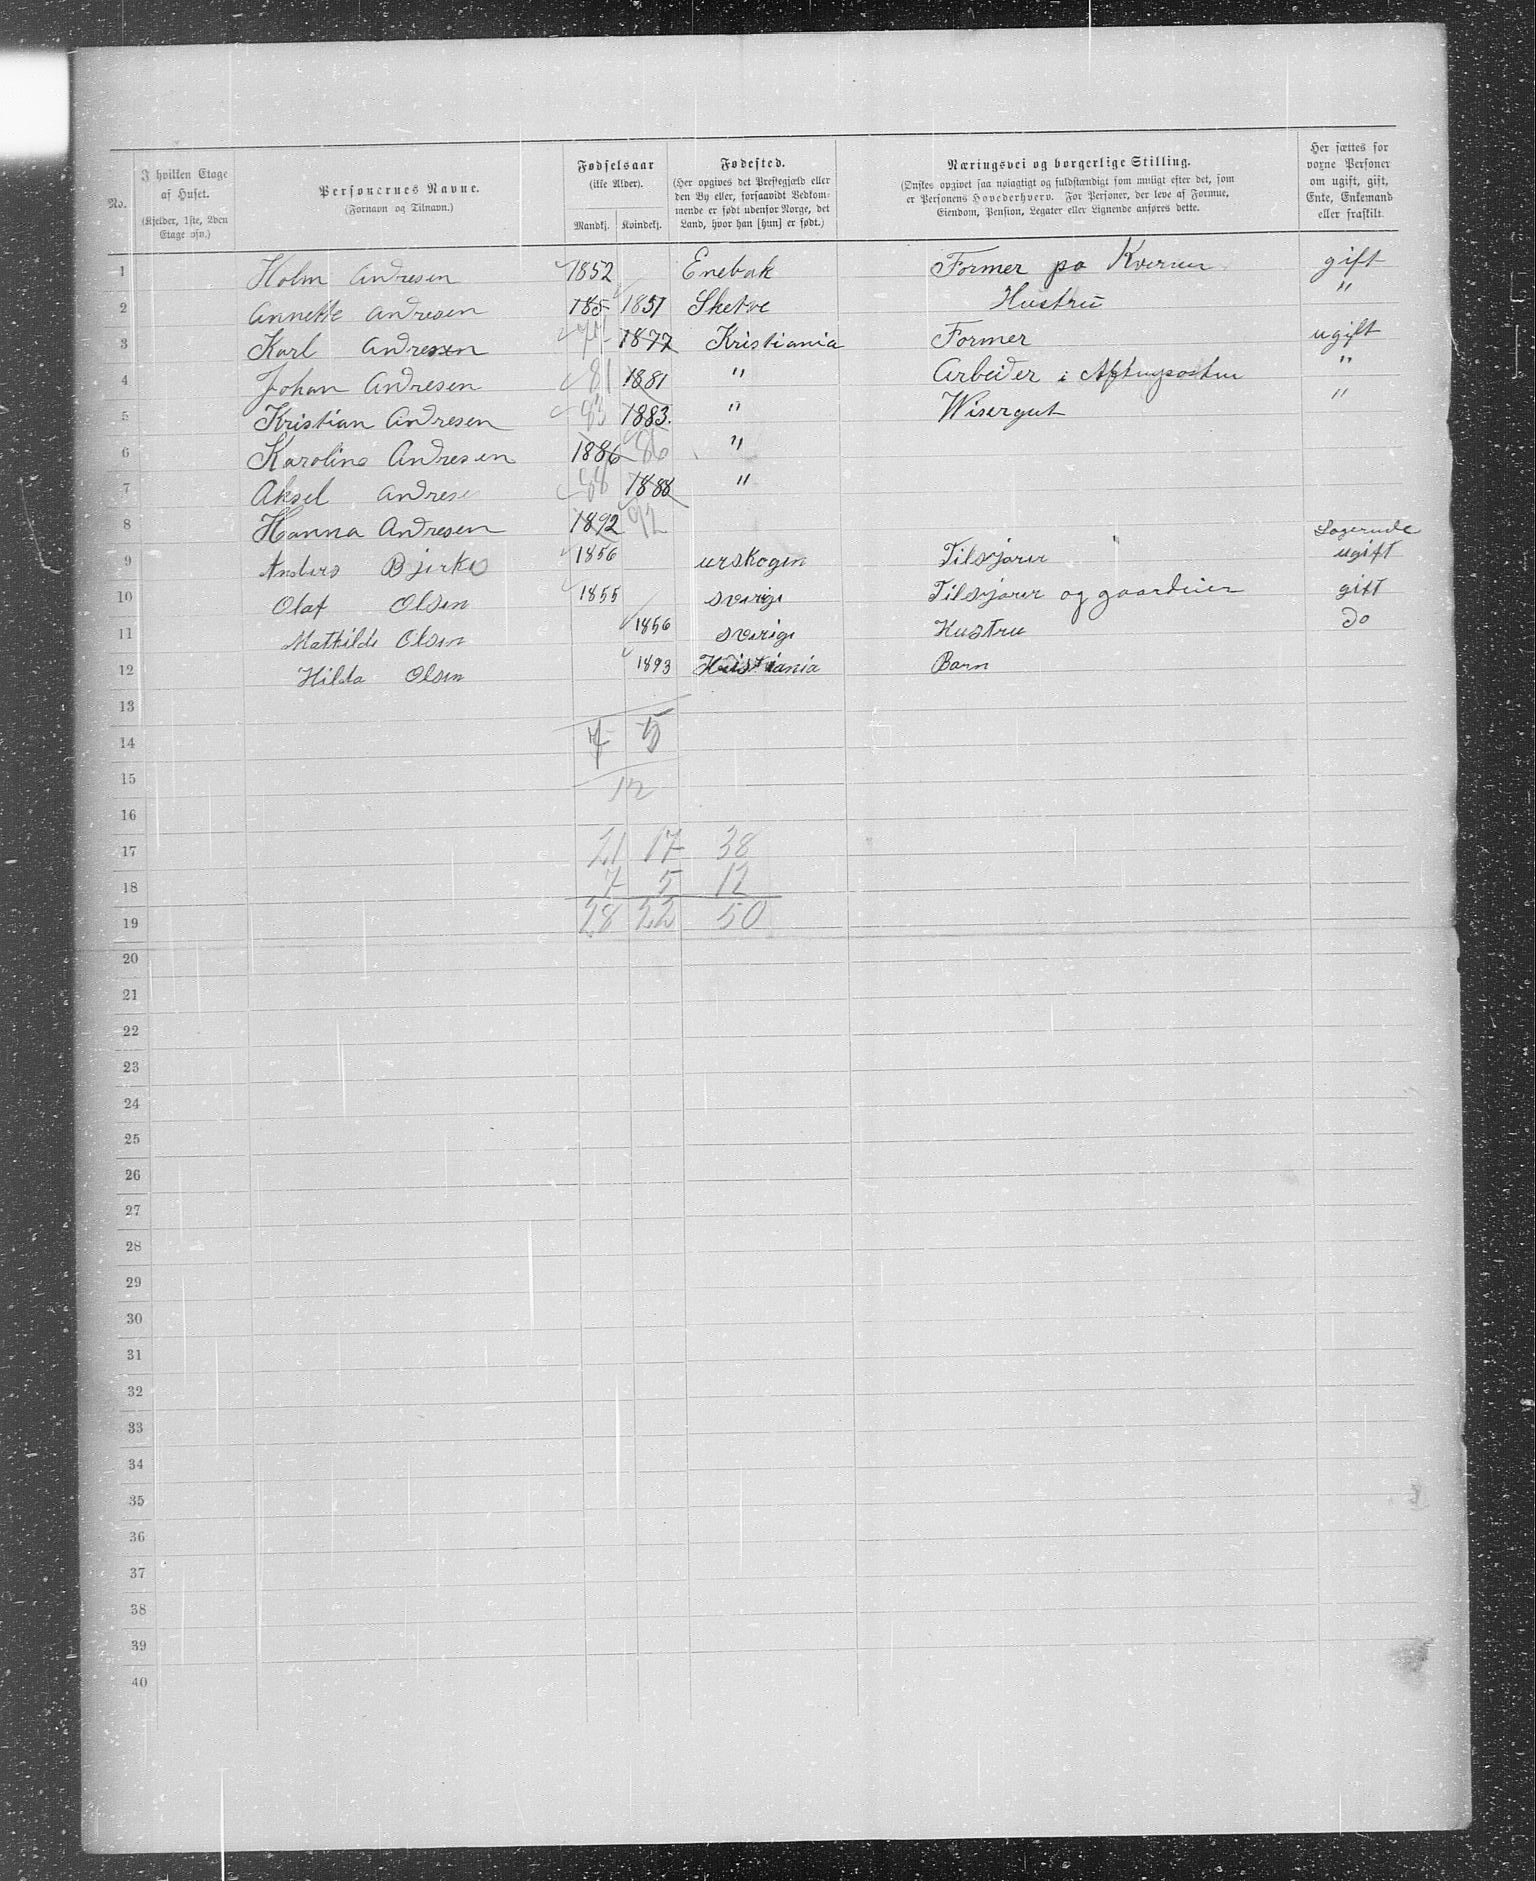 No. | I hvilken Etage af Huset. (Kjelder, 1ste, 2den Etage osv.) | Personernes Navne. (Fornavn og Tilnavn.) | Fødselsaar (ikke Alder). Mandkj. Kvindekj. | Fødested. (Her opgives det Prestegjæld eller den By eller, forsaavidt Vedkommende er født udenfor Norge, det Land, hvor han [hun] er født.) | Næringsvei og borgerlige Stilling. (Ønskes opgivet saa nøiagtigt og fuldstændigt som muligt efter det, som er Personens Hovederhverv. For Personer, der leve af Formue, Eiendom, Pension, Legater eller Lignende anføres dette.) | Her sættes for voxne Personer om ugift, gift, Enke, Enkemand eller fraskilt.
1 Holm Andresen 1852 Enebak Former pa Kverner gift
2 Annette Andresen 185 1851 Sketve Hustru "
3 Karl Andresen 77 1877 Kristiania Former ugift
4 Johan Andresen 81 1881 " Arbeider i Aftenposten "
5 Kristian Andresen 83 1883. " Wisergut "
6 Karoline Andresen 1886 86 "
7 Aksel Andrese 88 1888 "
8 Hanna Andresen 1892 92
Logerende
9 Anders Bjerke 1856 urskogen Tilsyjarer ugift
10 Olaf Olsen 1855 sverige Tilsyjarer og gaardeier gift
11 Mathilde Olsen 1856 sverige Hustru do
12 Hilda Olsen 1893 Kristiania Barn
13
14 7 5
15 12
16
17 21 17 38
18 7 5 12
19 28 22 50
20
21
22
23
24
25
26
27
28
29
30
31
32
33
34
35
36
37
38
39
40